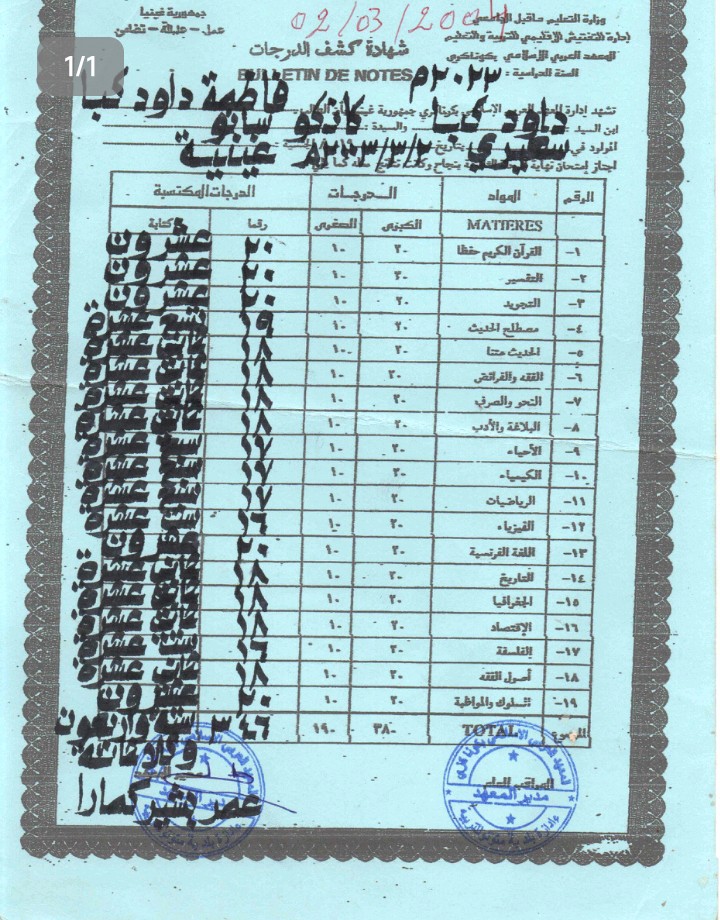 1/1
02/03/2004
وزارة التعليم ماقبل الجامعي
جمهورية غينيا
إدارة التفتيش الإقليمي للتربية والتعليم
عمل – عدالة – تضامن
المعهد العربي الإسلامي بكوناكري
شهادة كشف الدرجات
السنة الدراسية : ٢٠٢٣م
BULLETIN DE NOTES
فاطمة داود كبا
ابن السيد : داود كبا والسيدة : كادكو سانو
المولود في
الرقم المواد الدرجات الدرجات المكتسبة
MATIERES الكبرى الصغرى رقما كتابة
١– القرآن الكريم حفظا ٢٠ ١٠ ٢٠ عشرون
٢– التفسير ٢٠ ١٠ ٢٠ عشرون
٣– التجويد ٢٠ ١٠ ٢٠ عشرون
٤– مصطلح الحديث ٢٠ ١٠ ١٩ تسع عشرة
٥– الحديث متنا ٢٠ ١٠ ١٨ ثماني عشرة
٦– الفقه والفرائض ٢٠ ١٠ ١٨ ثماني عشرة
٧– النحو والصرف ٢٠ ١٠ ١٨ ثماني عشرة
٨– البلاغة والأدب ٢٠ ١٠ ١٨ ثماني عشرة
٩– الأحياء ٢٠ ١٠ ١٧ سبع عشرة
١٠– الكيمياء ٢٠ ١٠ ١٧ سبع عشرة
١١– الرياضيات ٢٠ ١٠ ١٧ سبع عشرة
١٢– الفيزياء ٢٠ ١٠ ١٦ ست عشرة
١٣– اللغة الفرنسية ٢٠ ١٠ ٢٠ عشرون
١٤– التاريخ ٢٠ ١٠ ١٨ ثماني عشرة
١٥– الجغرافيا ٢٠ ١٠ ١٨ ثماني عشرة
١٦– الإقتصاد ٢٠ ١٠ ١٨ ثماني عشرة
١٧– الفلسفة ٢٠ ١٠ ١٦ ست عشرة
١٨– أصول الفقه ٢٠ ١٠ ١٨ ثماني عشرة
١٩– السلوك والمواظبة ٢٠ ١٠ ٢٠ عشرون
المجموع TOTAL ٣٨٠ ١٩٠ ٣٤٦ ستة وأربعون
وثلاثمائة
المراقب العام
مدير المعهد
عمر بشير كمارا